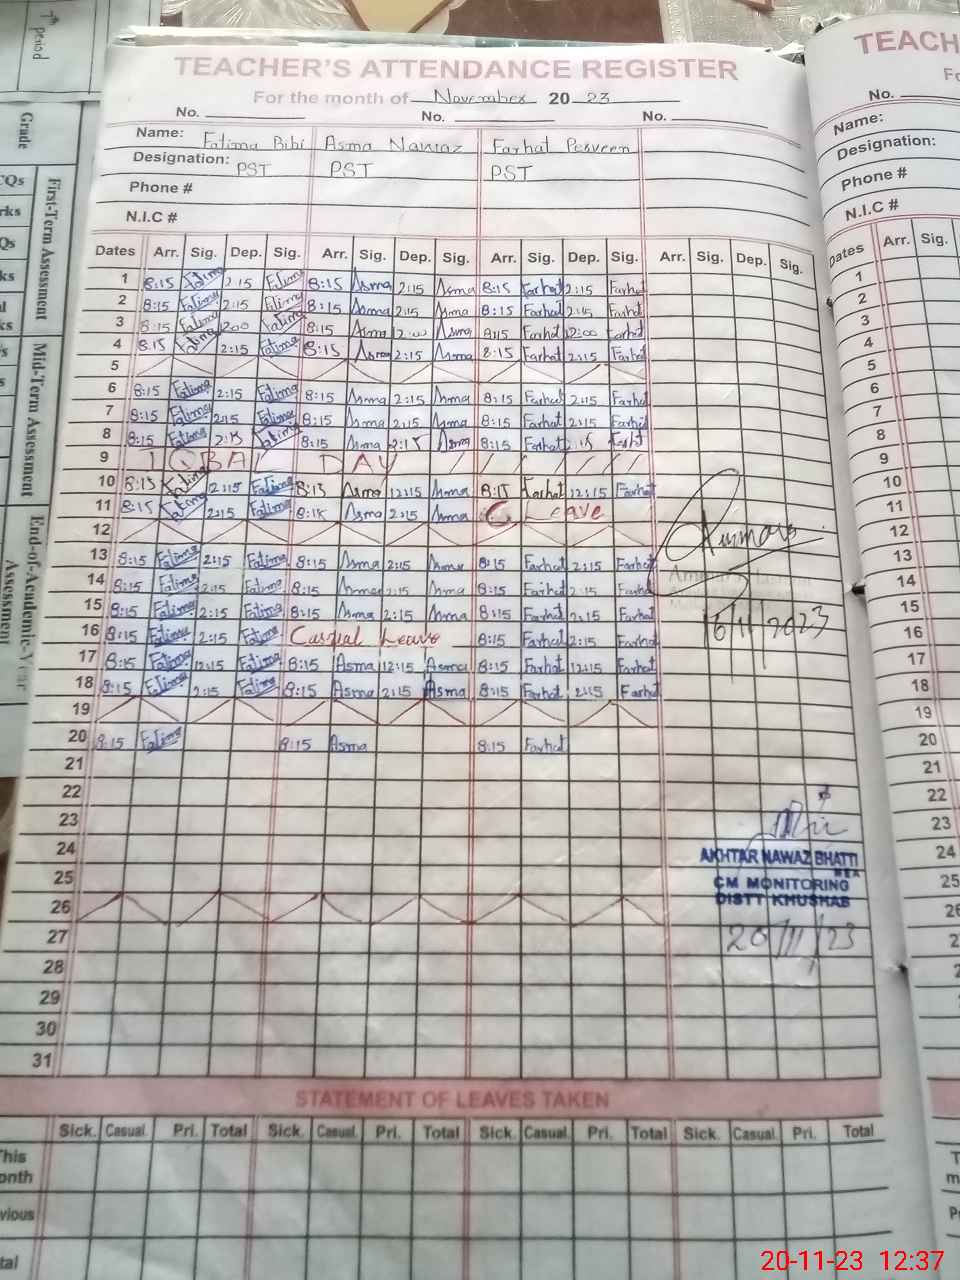 TEACHER'S ATTENDANCE REGISTER
For the month of November 20 23
No. No. No.
Name: Fatima Bibi Asma Nawaz Farhat Perveen
Designation: PST PST PST
Phone #
N.I.C #
Dates Arr. Sig. Dep. Sig. Arr. Sig. Dep. Sig. Arr. Sig. Dep. Sig. Arr. Sig. Dep. Sig.
1 8:15 Fatima 2:15 Fatima 8:15 Asma 2:15 Asma 8:15 Farhat 2:15 Farhat
2 8:15 Fatima 2:15 Fatima 8:15 Asma 2:15 Asma 8:15 Farhat 2:15 Farhat
3 8:15 Fatima Fatima 8:15 Asma 12:00 Asma 8:15 Farhat 12:00 Farhat
4 8:15 Fatima 2:15 Fatima 8:15 Asma 2:15 Asma 8:15 Farhat 2:15 Farhat
5
6 8:15 Fatima 2:15 Fatima 8:15 Asma 2:15 Asma 8:15 Farhat 2:15 Farhat
7 8:15 Fatima 2:15 Fatima 8:15 Asma 2:15 Asma 8:15 Farhat 2:15 Farhat
8 8:15 Fatima 2:15 Fatima 8:15 Asma 2:15 Asma 8:15 Farhat 2:15 Farhat
9 IQBAL DAY
10 8:15 Fatima 12:15 Fatima 8:15 Asma 12:15 Asma 8:15 Farhat 12:15 Farhat
11 8:15 Fatima 2:15 Fatima 8:15 Asma 2:15 Asma C. Leave
12
13 8:15 Fatima 2:15 Fatima 8:15 Asma 2:15 Asma 8:15 Farhat 2:15 Farhat
14 8:15 Fatima 2:15 Fatima 8:15 Asma 2:15 Asma 8:15 Farhat 2:15 Farhat
15 8:15 Fatima 2:15 Fatima 8:15 Asma 2:15 Asma 8:15 Farhat 2:15 Farhat
16 8:15 Fatima 2:15 Fatima Casual Leave 8:15 Farhat 2:15 Farhat
16/11/2023
17 8:15 Fatima 12:15 Fatima 8:15 Asma 12:15 Asma 8:15 Farhat 12:15 Farhat
18 8:15 Fatima 2:15 Fatima 8:15 Asma 2:15 Asma 8:15 Farhat 2:15 Farhat
19
20 8:15 Fatima 8:15 Asma 8:15 Farhat
21
22
23
24
25
26
27
28
29
30
31
AKHTAR NAWAZ BHATTI
MEA
CM MONITORING
DISTT KHUSHAB
20/11/23
STATEMENT OF LEAVES TAKEN
Sick. Casual Pri. Total Sick. Casual Pri. Total Sick. Casual Pri. Total Sick. Casual Pri. Total
This
onth
vious
tal
TEACH
No.
Name:
Designation:
Phone #
N.I.C #
Dates Arr. Sig.
1
2
3
4
5
6
7
8
9
10
11
12
13
14
15
16
17
18
19
20
21
22
23
24
25
26
Th
period
Grade
First-Term Assessment
Mid-Term Assessment
End-of-Academic-Year
Assessment
20-11-23 12:37